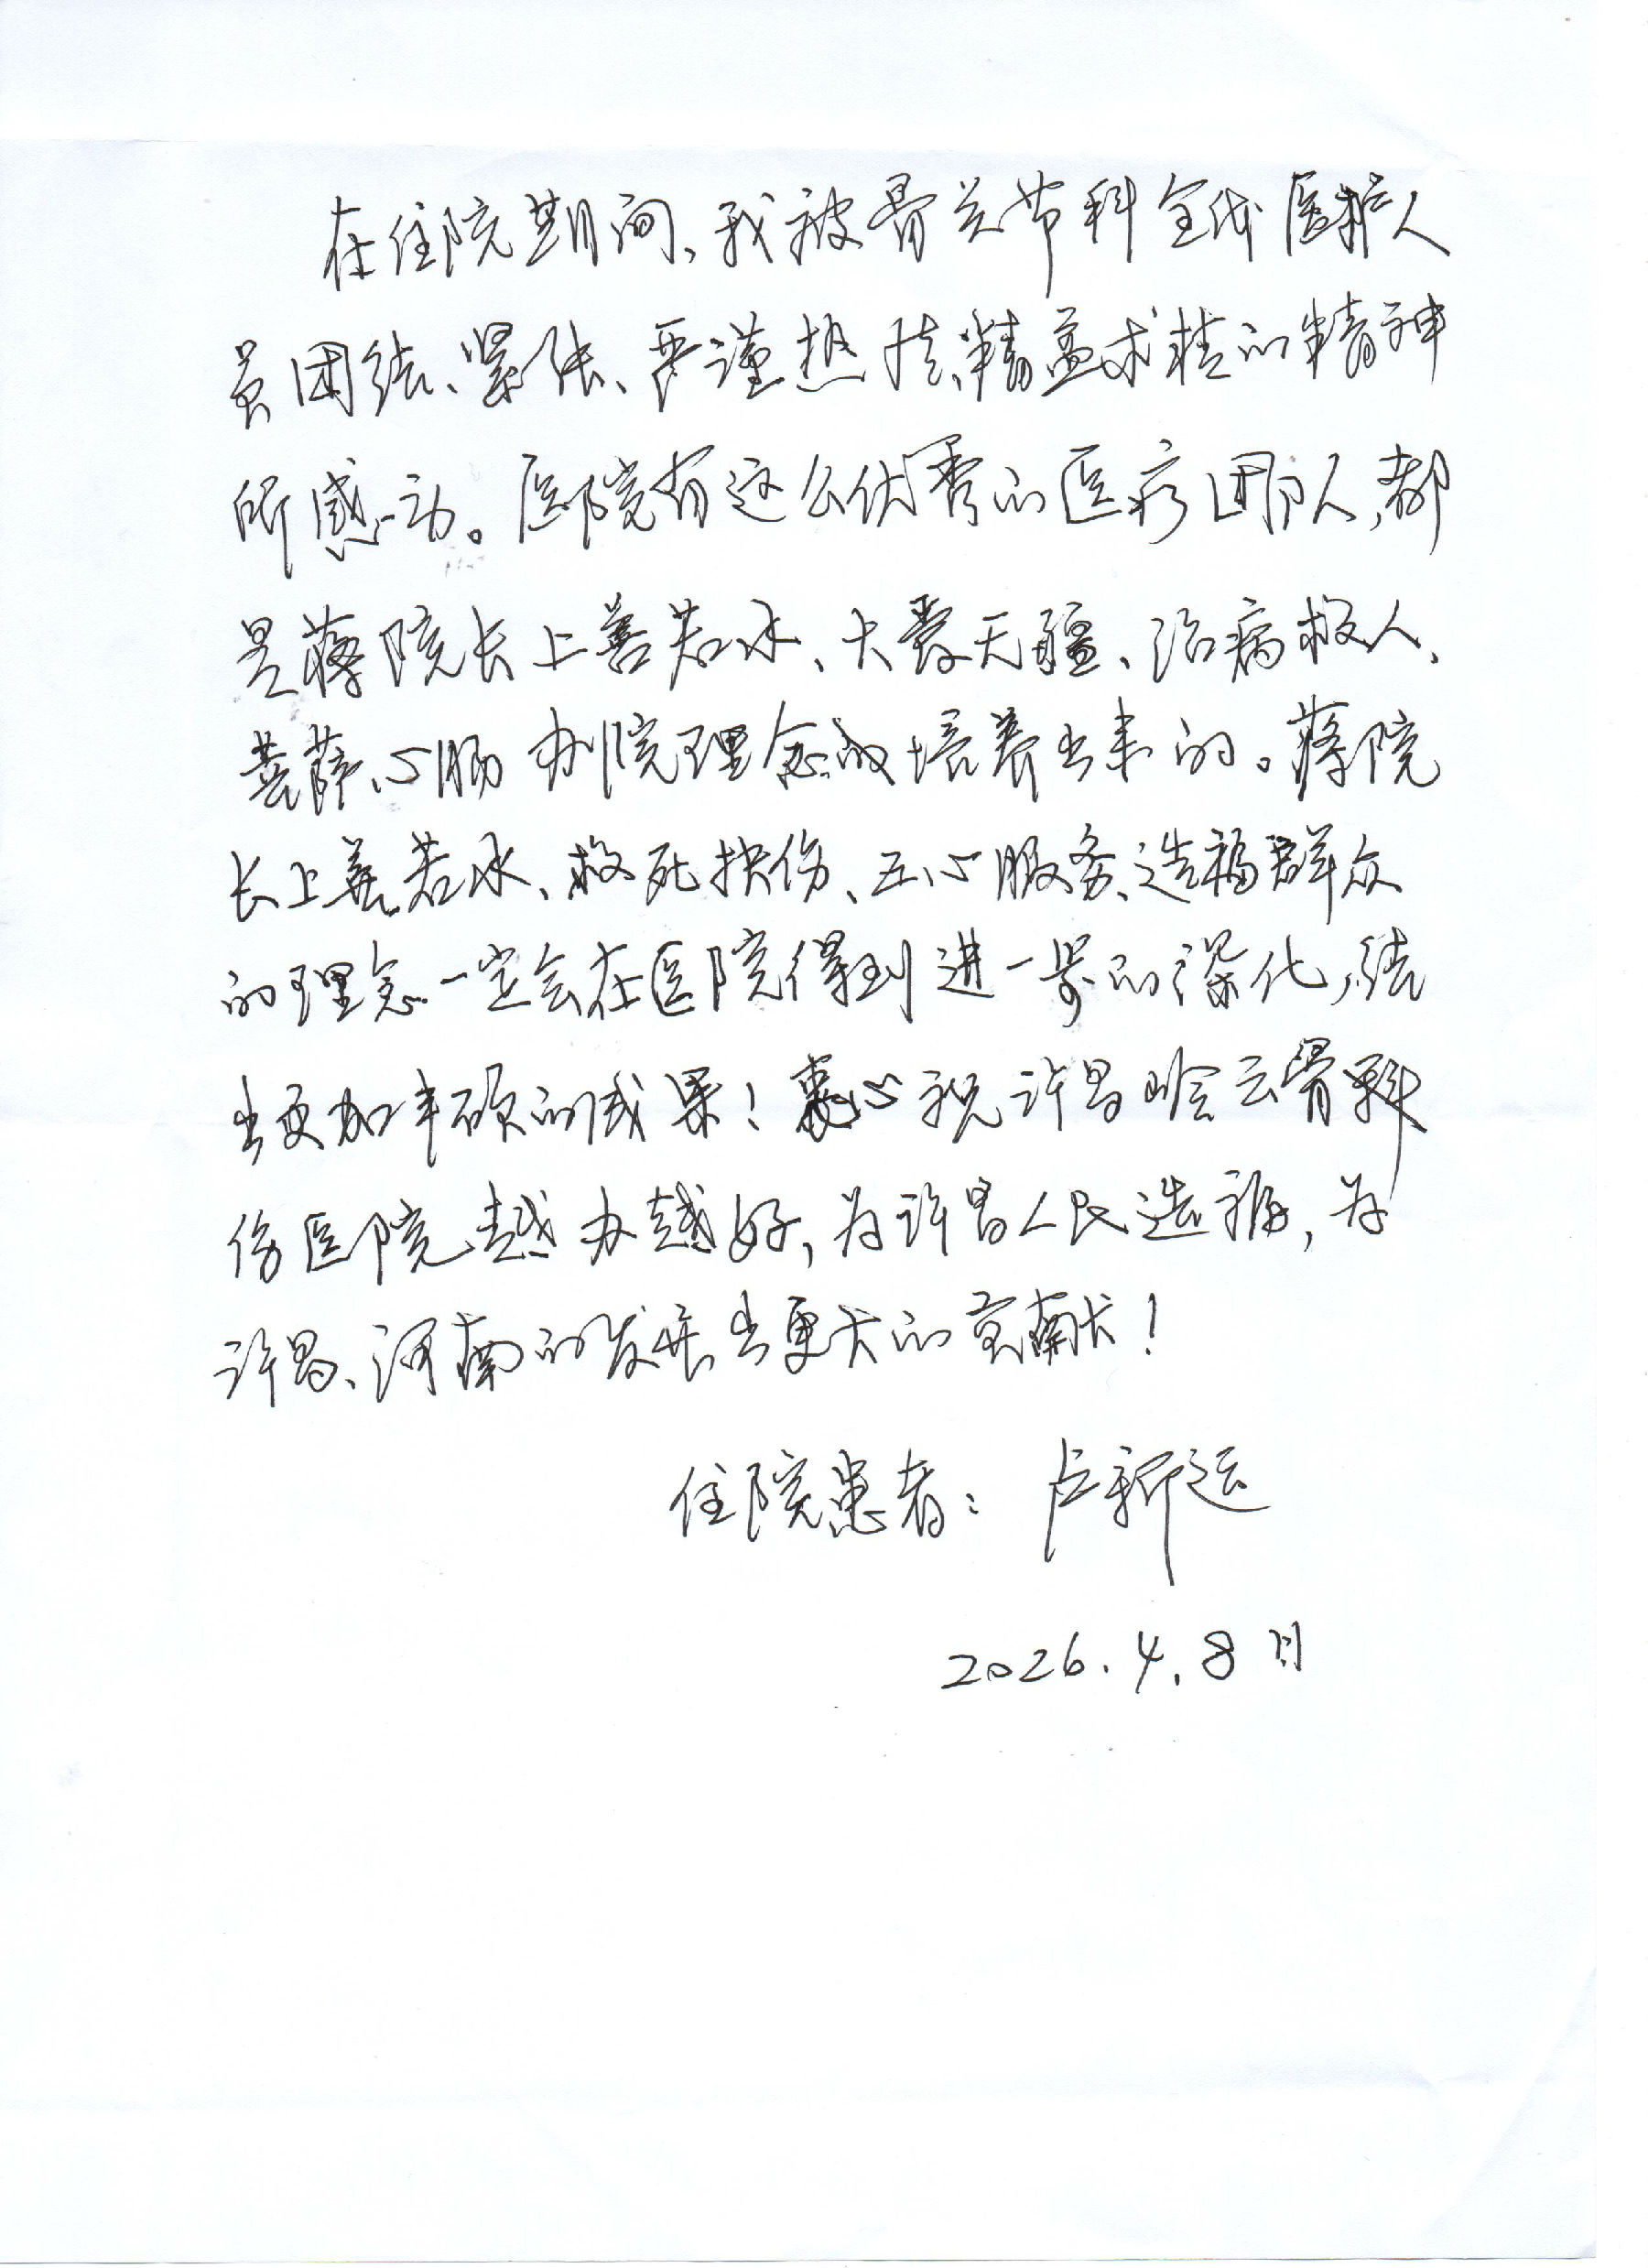 在住院期间、我被骨关节科全体医护人
员团结、紧张、严谨热情、精益求精的精神
所感动。医院有这么优秀的医疗团队,都
是蒋院长上善若水、大爱无疆、治病救人、
菩萨心肠办院理念的培养出来的。蒋院
长上善若水、救死扶伤、五心服务、造福群众
的理念一定会在医院得到进一步的深化,结
出更加丰硕的成果!衷心祝许昌岭云骨科
伤医院越办越好,为许昌人民造福,为
许昌、河南的发展出更大的贡献!
住院患者:卢新运
2026.4.8日